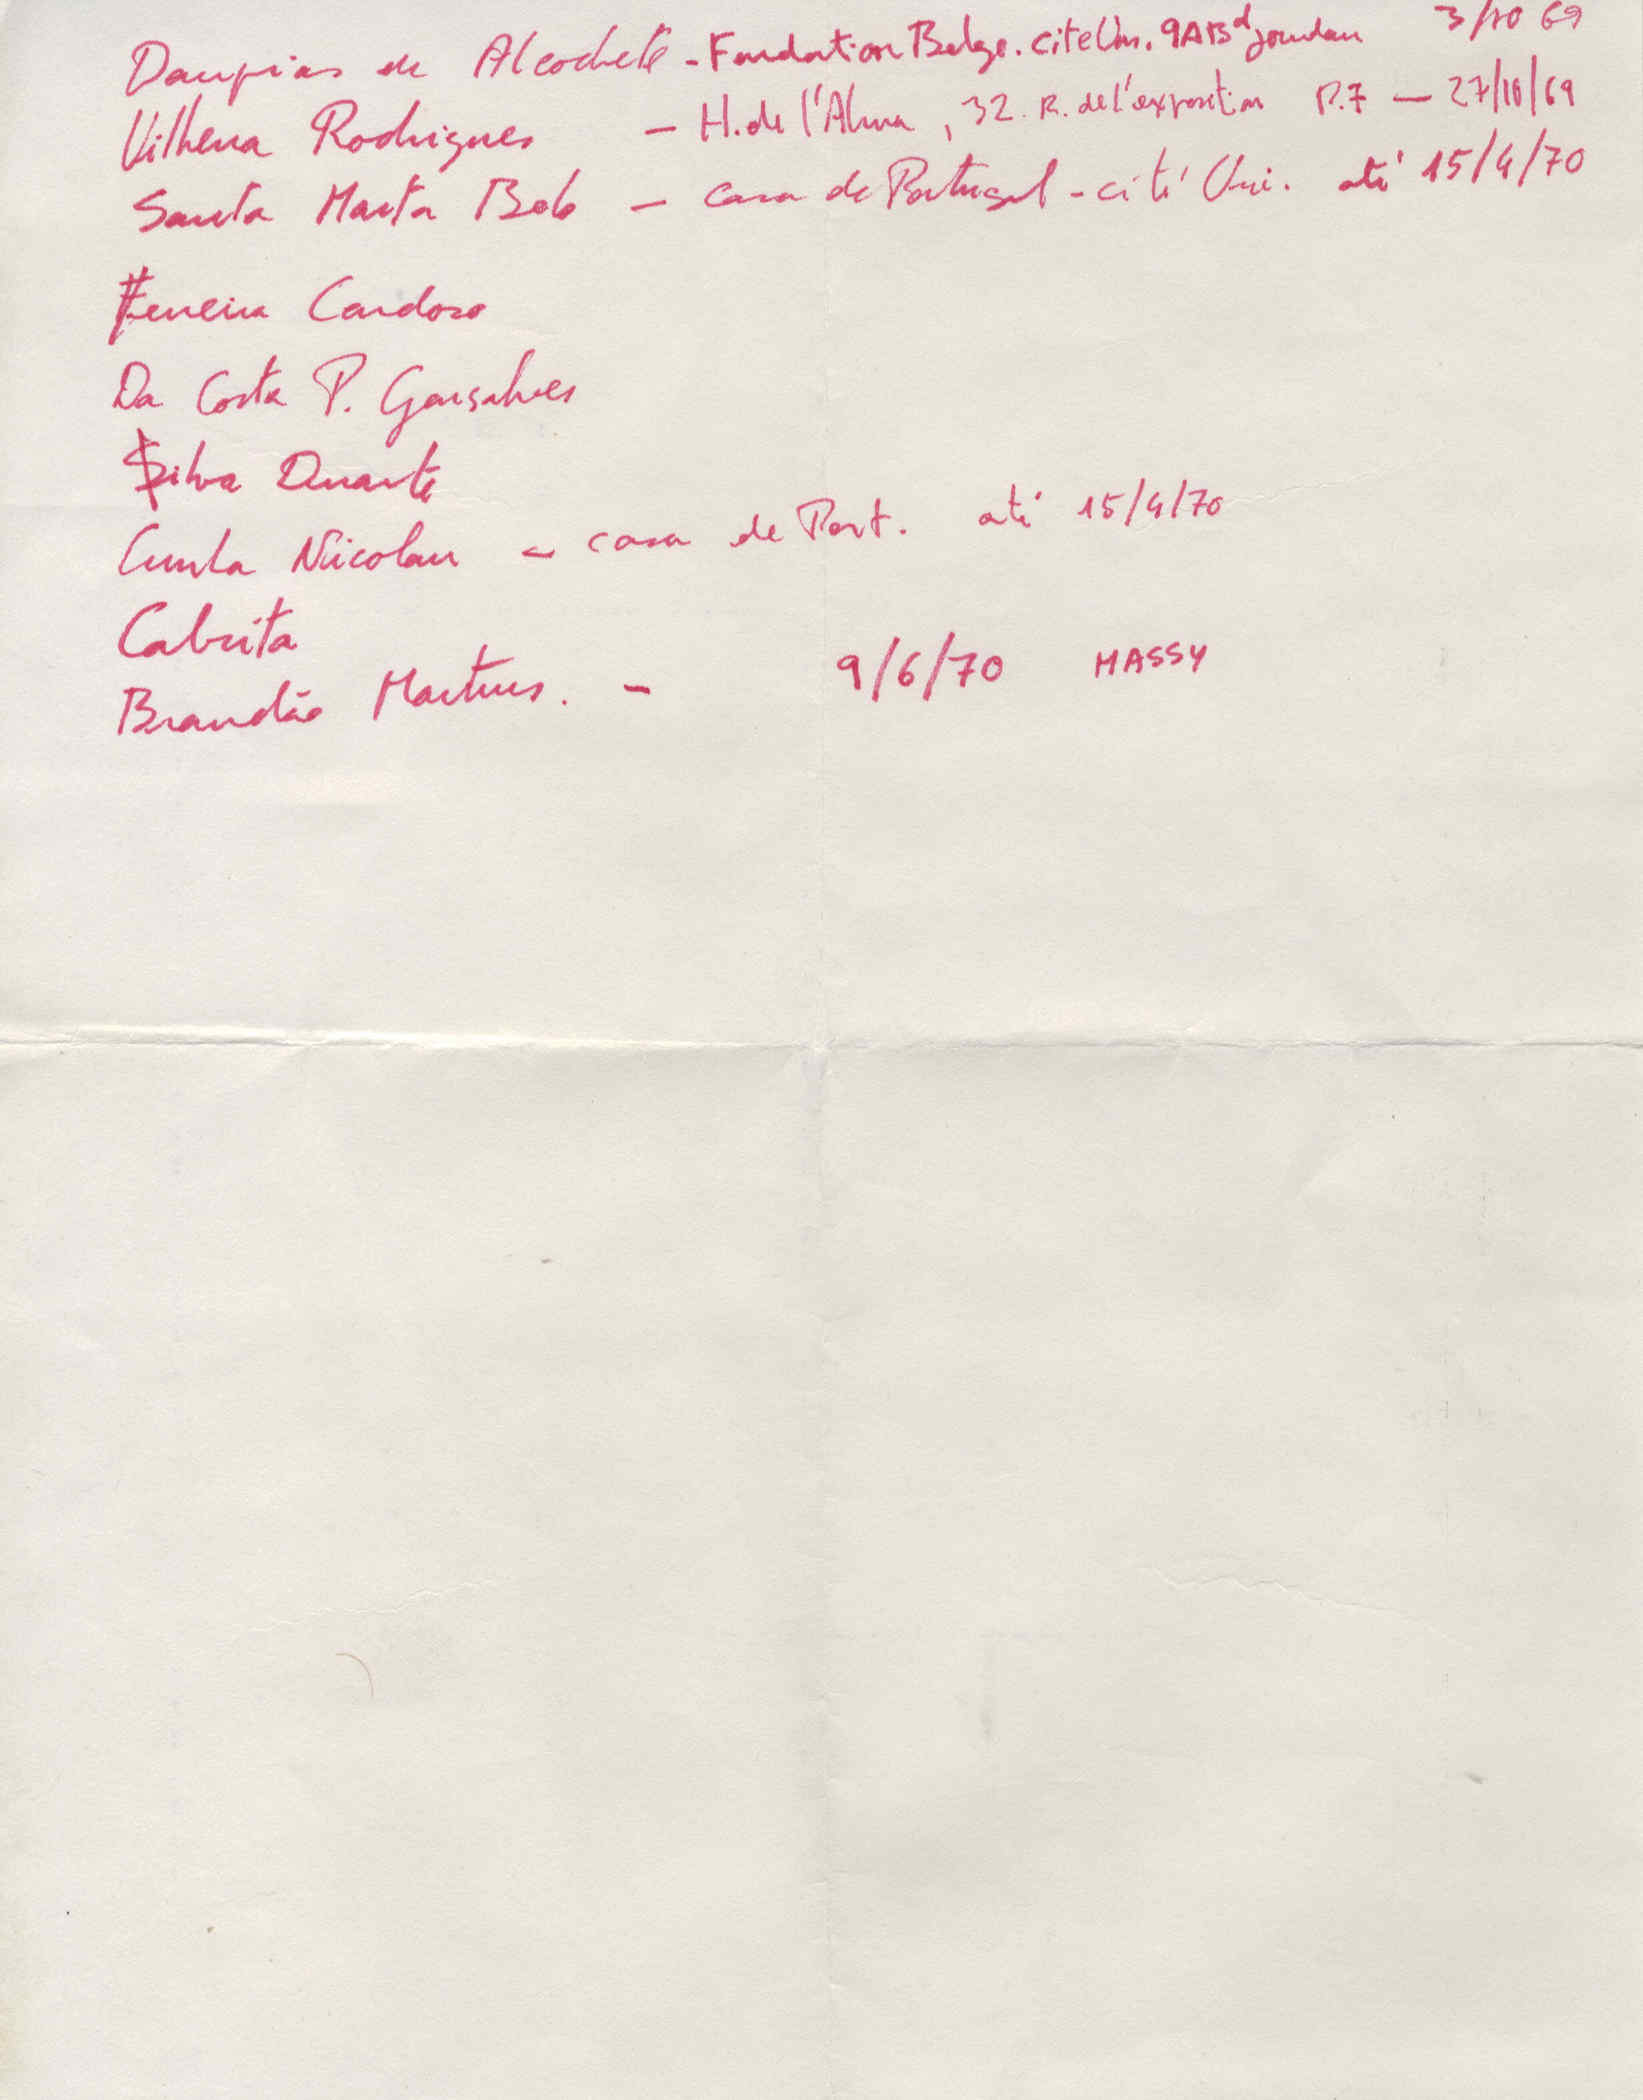 Daupias de Alcochete - Fondation Belge. Cité Un. 9A Bd Jourdan 3/10 69
Vilhena Rodrigues - H. de l'Alma, 32. R. de l'exposition P.7 - 27/10/69
Santa Marta Bobo - casa de Portugal - cité Uni. até 15/4/70
Ferreira Cardoso
Da Costa P. Gonsalves
Silva Duarte
Cunha Nicolau - casa de Port. até 15/4/70
Cabrita
Brandão Martins. - 9/6/70 MASSY